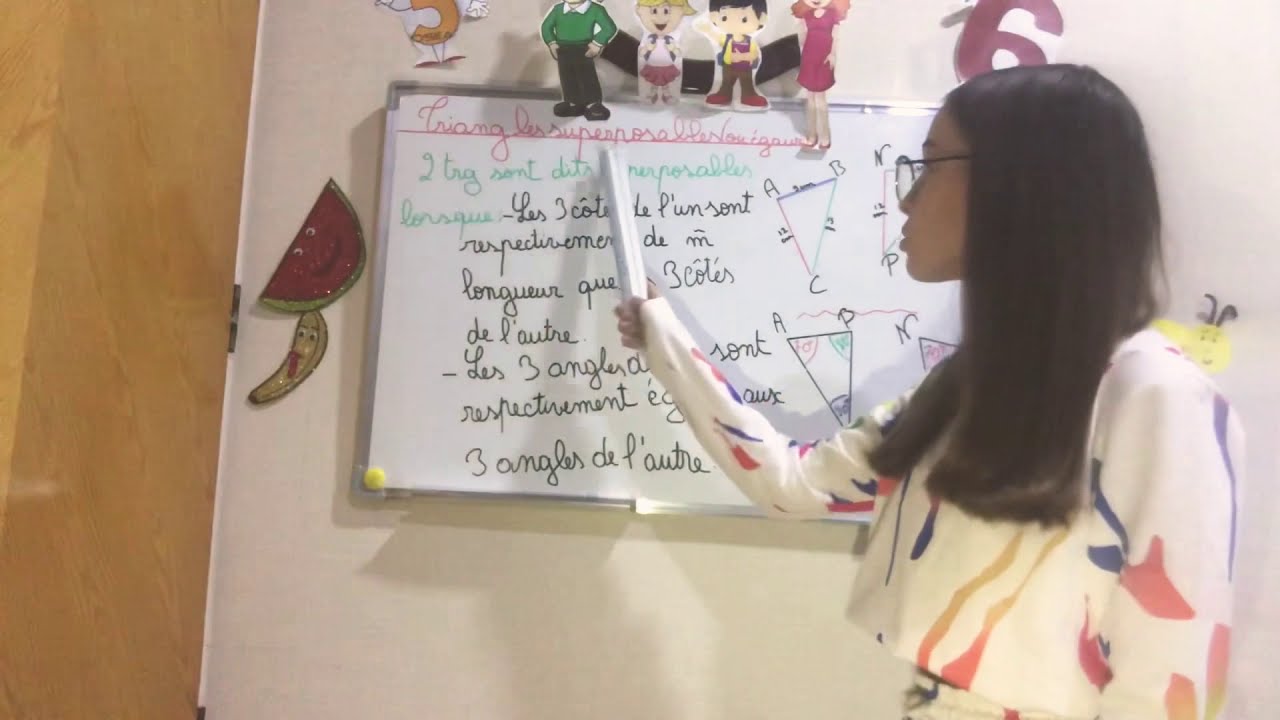 Triangles superposables (ou égaux
2 trg sont dits
lorsque: - Les 3 côtés de l'un sont
respectivement de m̃
longueur que 3 côtés
de l'autre.
- Les 3 angles sont
respectivement aux
3 angles de l'autre.
A B
C
N
P
A B
N
70°
6